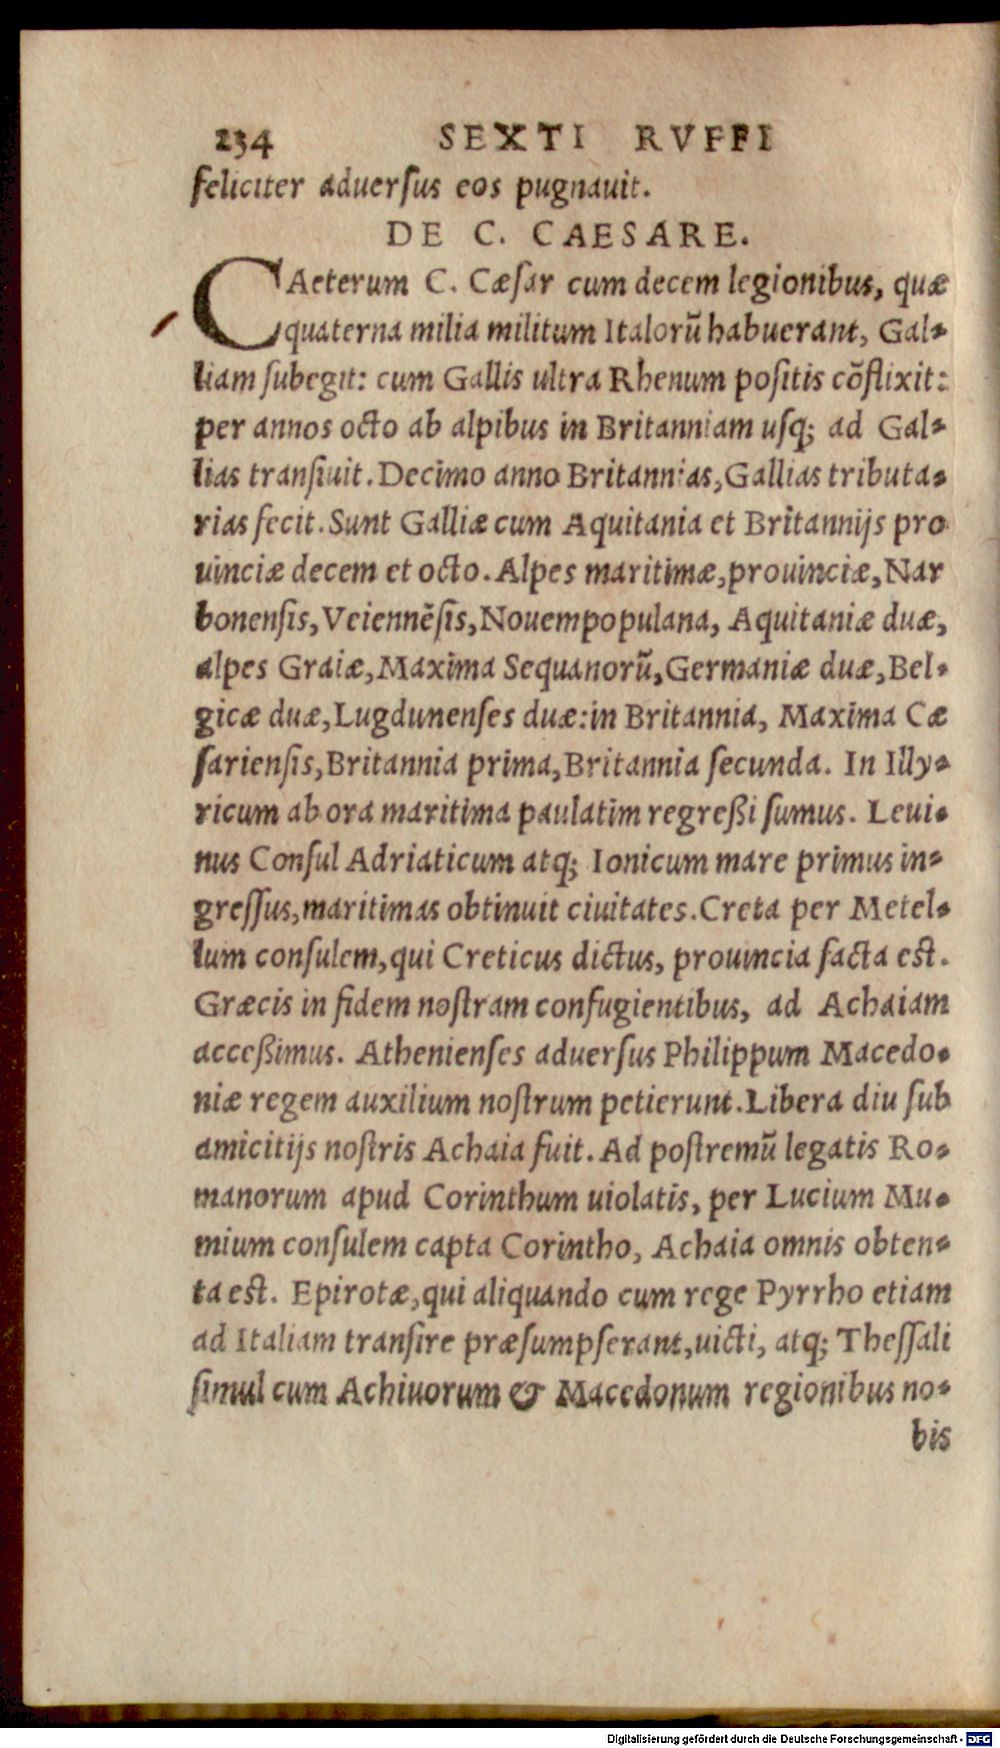 234 SEXTI RVFFI
feliciter aduerſus eos pugnauit.
DE C. CAESARE.
CAeterum C. Cæſar cum decem legionibus, quæ
quaterna milia militum Italorũ habuerant, Gal-
liam ſubegit: cum Gallis ultra Rhenum poſitis cõflixit:
per annos octo ab alpibus in Britanniam uſq; ad Gal-
lias tranſiuit. Decimo anno Britannias, Gallias tributa-
rias fecit. Sunt Galliæ cum Aquitania et Britannijs pro
uinciæ decem et octo. Alpes maritimæ, prouinciæ, Nar
bonenſis, Veiennẽſis, Nouempopulana, Aquitaniæ duæ,
alpes Graiæ, Maxima Sequanorũ, Germaniæ duæ, Bel-
gicæ duæ, Lugdunenſes duæ: in Britannia, Maxima Cæ
ſarienſis, Britannia prima, Britannia ſecunda. In Illy-
ricum ab ora maritima paulatim regreßi ſumus. Leui-
nus Conſul Adriaticum atq; Ionicum mare primus in-
greſſus, maritimas obtinuit ciuitates. Creta per Metel-
lum conſulem, qui Creticus dictus, prouincia facta eſt.
Græcis in fidem noſtram confugientibus, ad Achaiam
acceßimus. Athenienſes aduerſus Philippum Macedo-
niæ regem auxilium noſtrum petierunt. Libera diu ſub
amicitijs noſtris Achaia fuit. Ad poſtremũ legatis Ro-
manorum apud Corinthum uiolatis, per Lucium Mu-
mium conſulem capta Corintho, Achaia omnis obten-
ta eſt. Epirotæ, qui aliquando cum rege Pyrrho etiam
ad Italiam tranſire præſumpſerant, uicti, atq; Theſſali
ſimul cum Achiuorum & Macedonum regionibus no-
bis
Digitalisierung gefördert durch die Deutsche Forschungsgemeinschaft - DFG